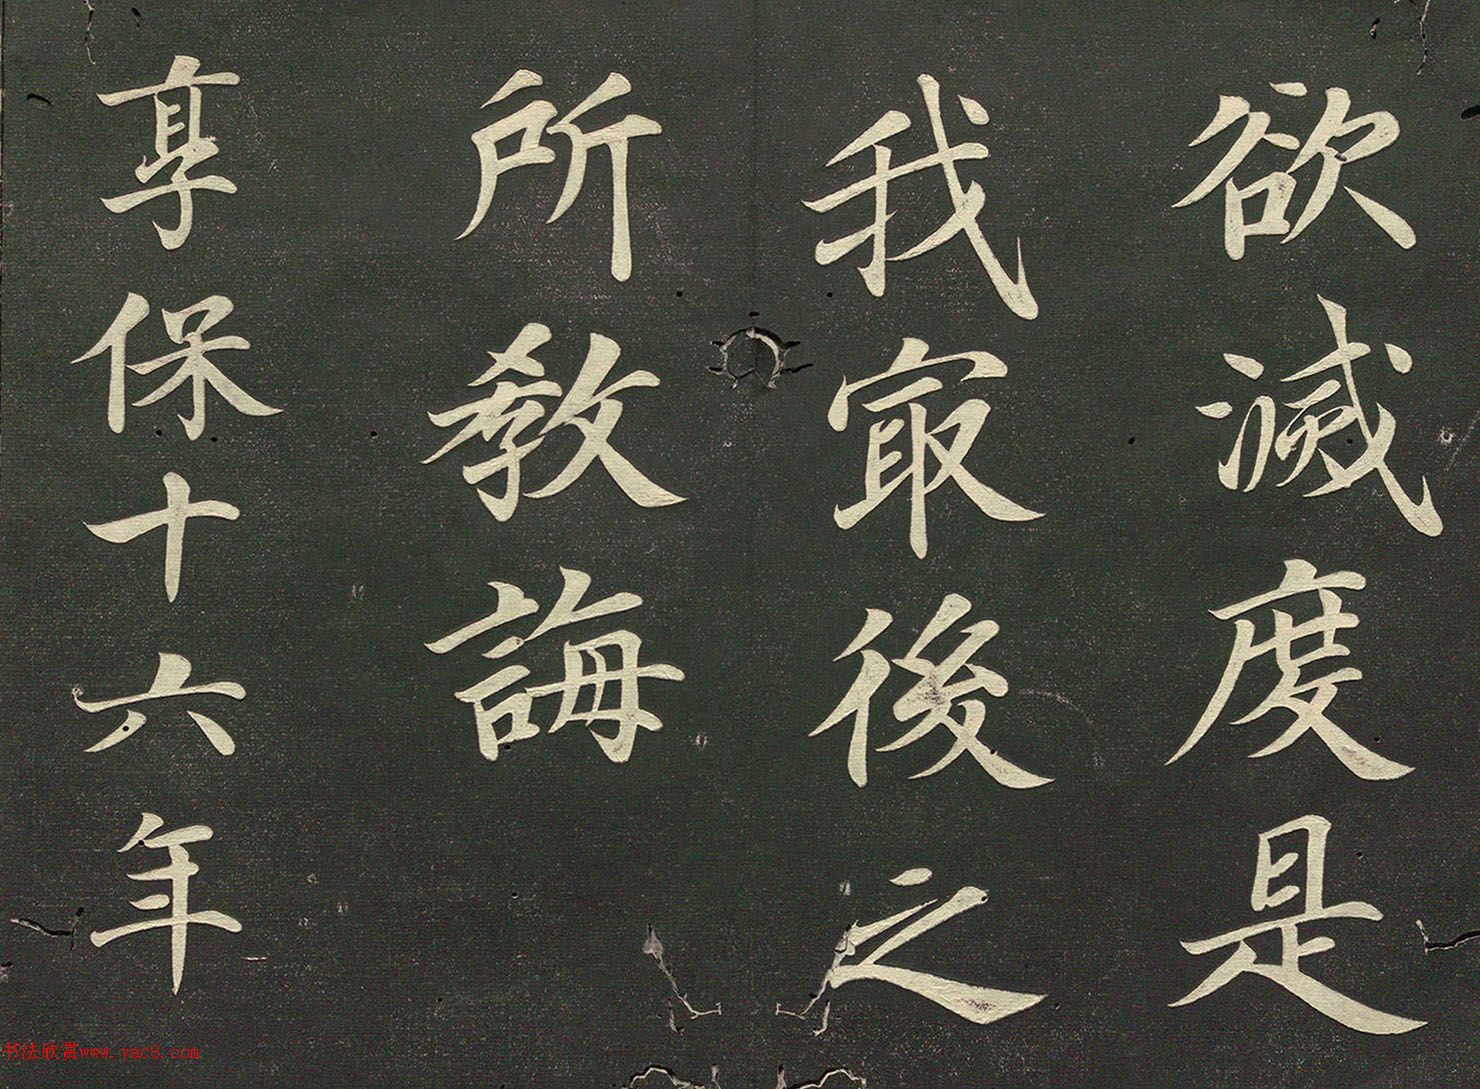 欲滅度是
我冣後之
所教誨
享保十六年
书法欣赏www.yac8.com